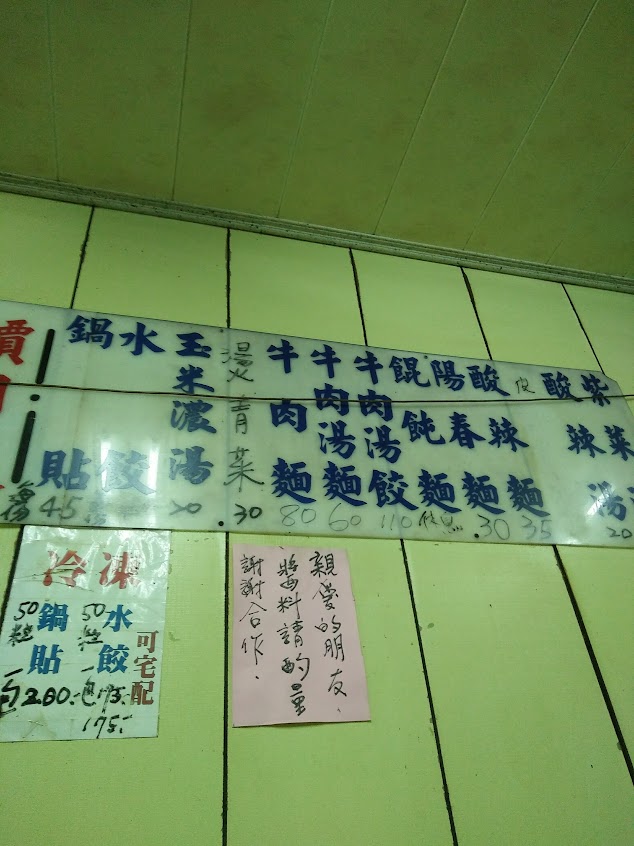 紫菜
酸辣湯 20
酸辣麵 35
陽春麵 30
餛飩麵
牛肉湯餃 110
牛肉湯麵 60
牛肉麵 80
燙青菜 .30
玉米濃湯 20
水餃
鍋貼 45
冷凍
水餃
50粒
一包175.-
175.-
鍋貼
50粒
200.-
可宅配
親愛的朋友、
醬料請酌量
謝謝合作.